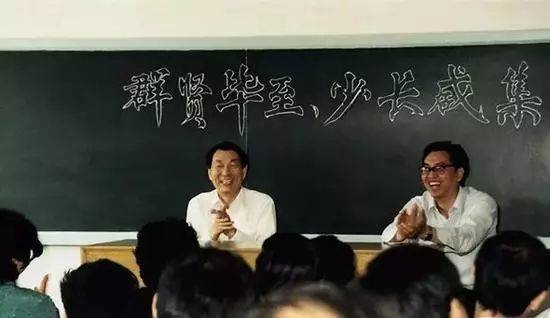 群贤毕至、少长咸集